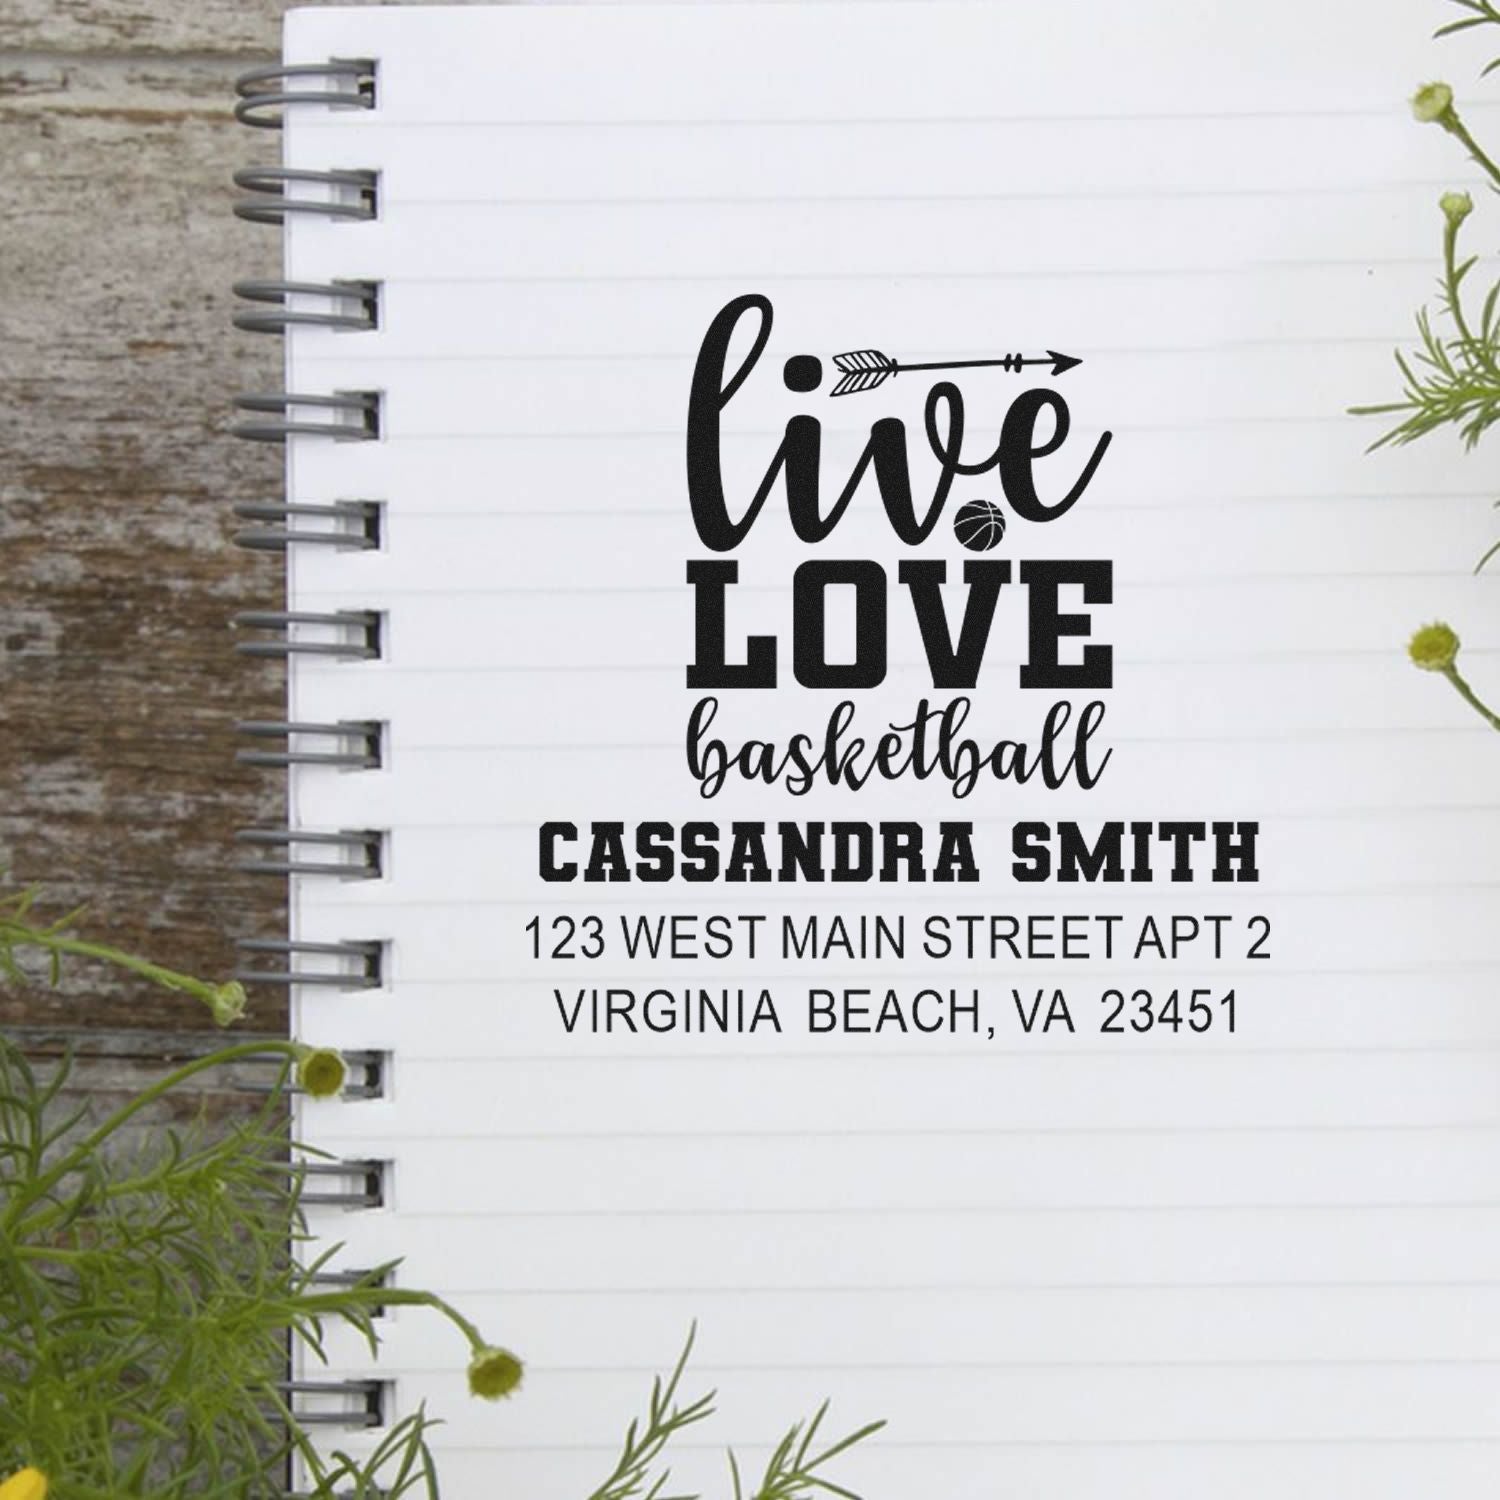 live
LOVE
basketball
CASSANDRA SMITH
123 WEST MAIN STREET APT 2
VIRGINIA BEACH, VA 23451